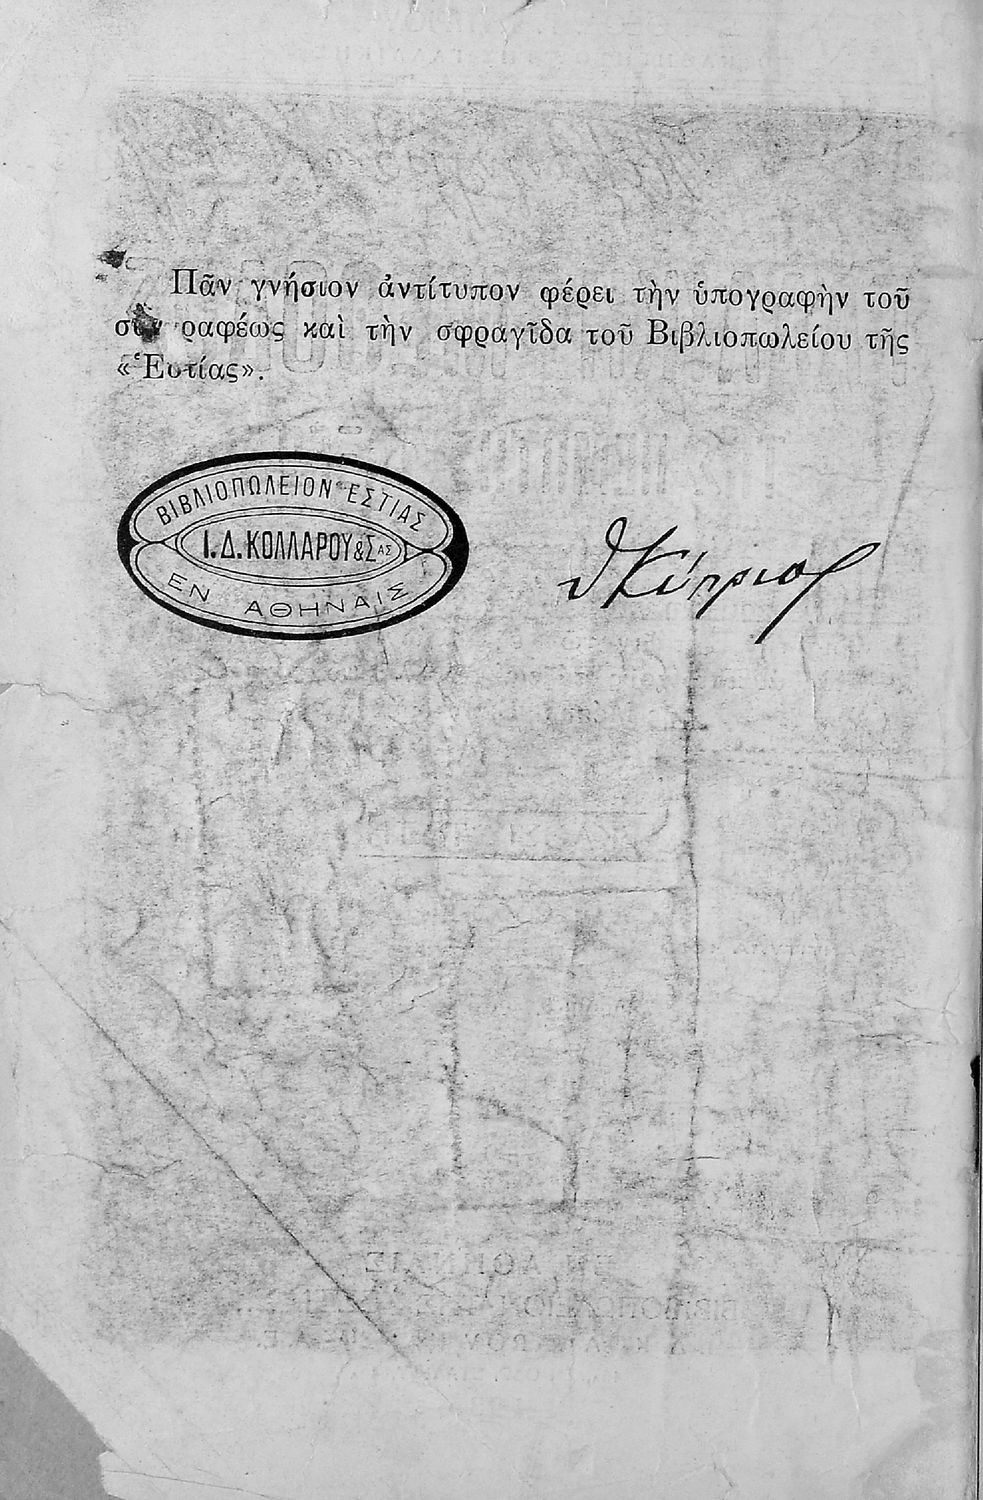 Πᾶν γνήσιον ἀντίτυπον φέρει τὴν ὑπογραφὴν τοῦ
συγγραφέως καὶ τὴν σφραγῖδα τοῦ Βιβλιοπωλείου τῆς
«Ἑστίας».
ΒΙΒΛΙΟΠΩΛΕΙΟΝ ΕΣΤΙΑΣ
Ι.Δ.ΚΟΛΛΑΡΟΥ&Σ ΑΣ
ΕΝ ΑΘΗΝΑΙΣ